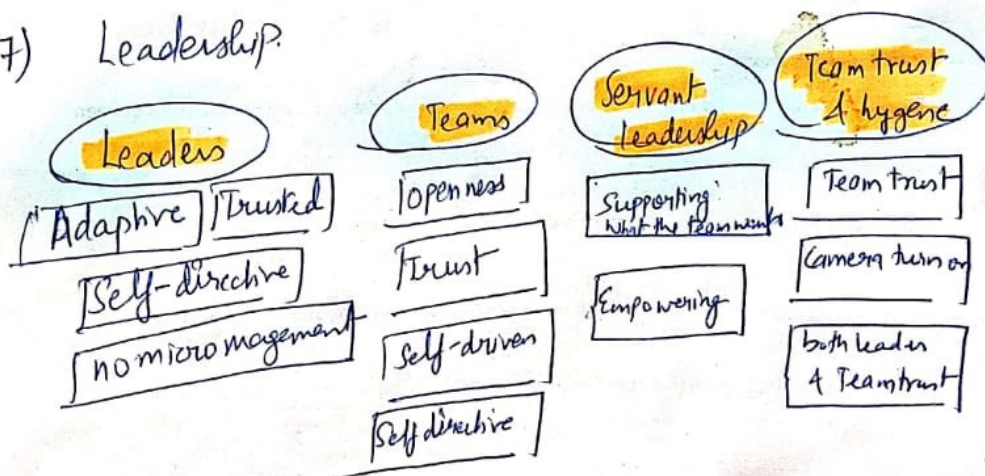 7) Leadership.
Leaders
Adaptive
Trusted
Self-directive
no micromagement
Teams
openness
Trust
Self-driven
Self directive
Servant
leadership
Supporting
what the team wants
Empowering
Team trust
& hygene
Team trust
Camera turn on
both leader
& Team trust